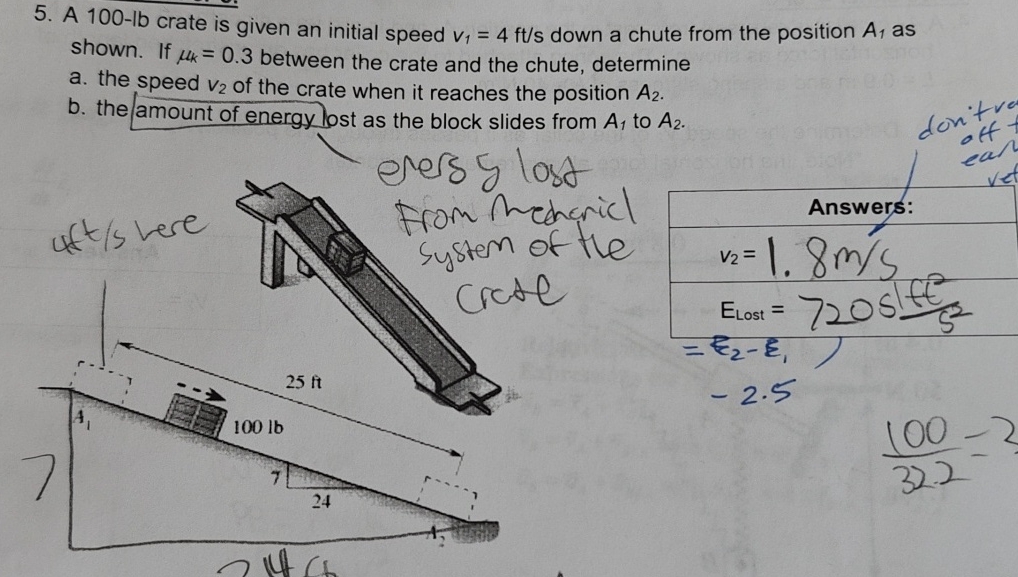 5. A 100-lb crate is given an initial speed v₁ = 4 ft/s down a chute from the position A₁ as
shown. If μk = 0.3 between the crate and the chute, determine
a. the speed v₂ of the crate when it reaches the position A₂.
b. the amount of energy lost as the block slides from A₁ to A₂.
don't
off
energy lost
From Mechanicl
System of the
Crate
4ft/s here
Answers:
v₂ = 1.8m/s
ELost = 720 sl ft²/s²
= E₂-E₁
- 2.5
25 ft
A₁
100 lb
7
24
A₂
7
24 ft
100/32.2 = 3